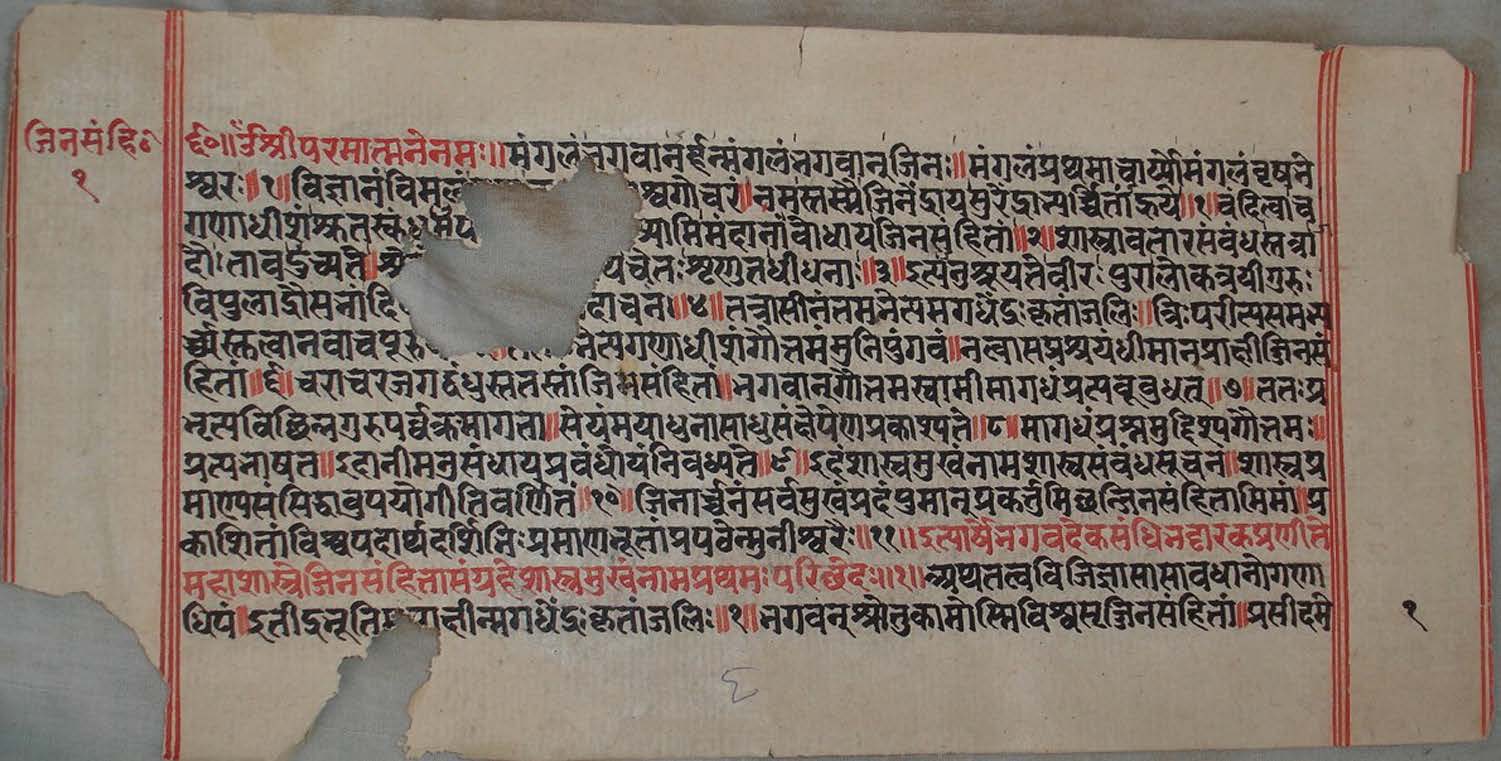 जिनसंहि॰
१
॥ॐश्रीपरमात्मनेनमः॥ मंगलंभगवानर्हन्मंगलंभगवान्जिनः॥ मंगलंप्रथमाचार्य्योमंगलंवृषभे
श्वरः॥१॥ विज्ञानंविमलं श्वगोचरं॥ नमस्तस्मैजिनेंद्रायसुरेंद्राभ्यर्च्चितांह्रये॥१॥ वंदित्वाच
गणाधीशंश्रुतस्कंधमप ग्रामिमंदानांबोधायजिनसंहितां॥२॥ शास्त्रावतारसंबंधस्तत्रा
दौ।तावदुच्यते॥ यचेतःशृणुतधीधनाः॥३॥ इत्यनुश्रूयतेवीरः पुरालोकत्रयीगुरुः
विपुलाद्रौसभांदि दावन॥४॥ तत्रासीनंतमभेत्यमगधेंद्रःकृतांजलिः॥ त्रिःपरीत्यसमभ्य
र्च्च्यस्तुत्वानत्वाच भेत्यगणाधीशंगौतमंमुनिपुंगवं॥ नत्वासप्रश्रयंधीमानप्राक्षीज्जिनसं
हितां॥६॥ चराचरजगद्बंधुस्ततस्तांजिनसंहितां॥ भगवान्गौतमस्वामीमागधंप्रत्यबूबुधत्॥७॥ ततःप्र
भृत्यविच्छिन्नगुरुपर्व्वक्रमागता॥ सेयंमयाधुनासाधुसंक्षेपेणप्रकाश्यते॥८॥ मागधंप्रश्नमुद्दिश्यगौतमः॥
प्रत्यभाषत॥ इदानीमनुसंधायप्रबंधोयंनिबध्यते॥९॥ इदंशास्त्रमुखंनामशास्त्रसंबंधसूचनं॥ शास्त्रप्र
माण्यसंसिद्धावुपयोगीतिवर्णितं॥१०॥ जिनार्च्चनंसर्वसुखप्रदंपुमान्प्रकर्तुमिच्छन्जिनसंहितामिमां॥ प्र
काशितांविश्वपदार्थदर्शिभिःप्रमाणभूतांप्रपठेन्मुनीश्वरैः॥११॥ इत्यार्षेभगवदेकसंधिभट्टारकप्रणीते
महाशास्त्रेजिनसंहितासंग्रहेशास्त्रमुखंनामप्रथमःपरिच्छेदः॥१॥ गणा
धिपं॥ इतींद्रभूति न्मगधेंद्रःकृतांजलिः॥१॥ भगवन्श्रोतुकामोस्मिविश्वसृज्जिनसंहितां॥ प्रसीदमे
१
६